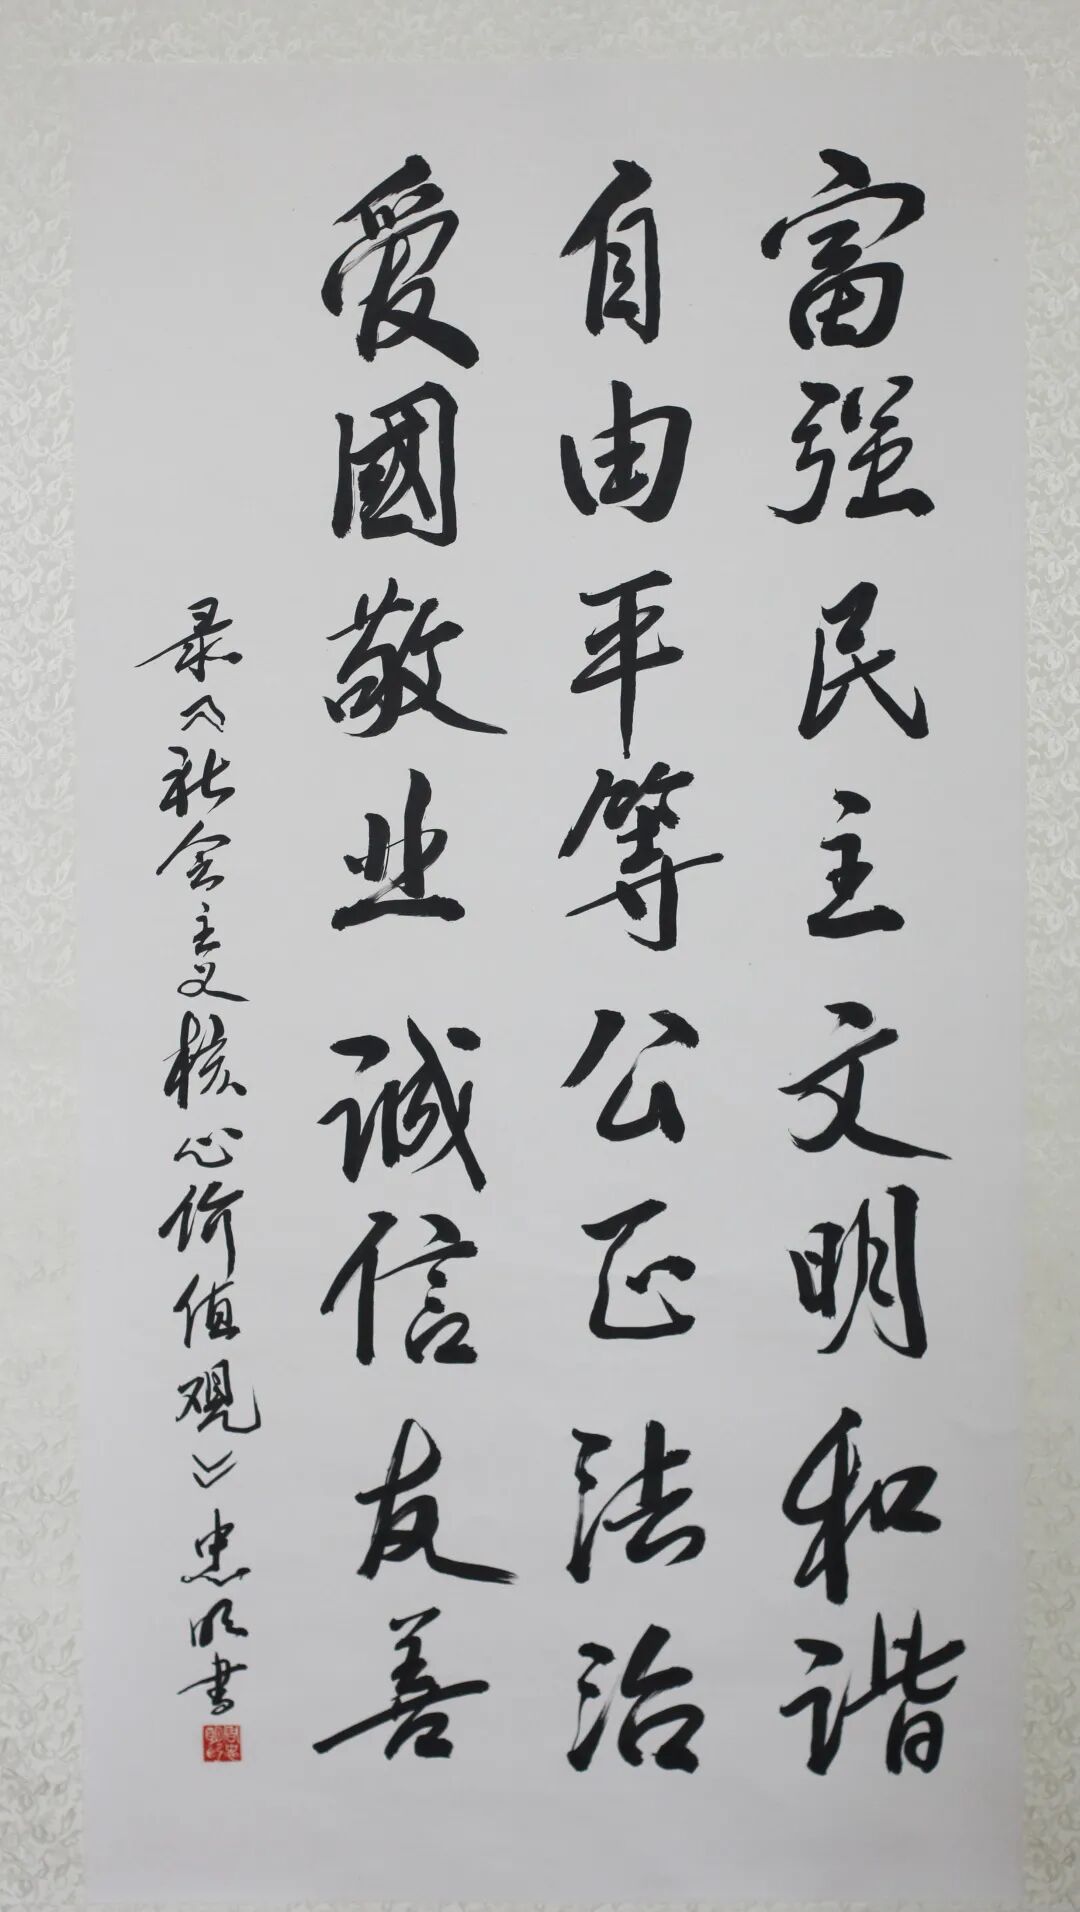 富强民主文明和谐
自由平等公正法治
爱國敬业诚信友善
录《社会主义核心价值观》忠明书